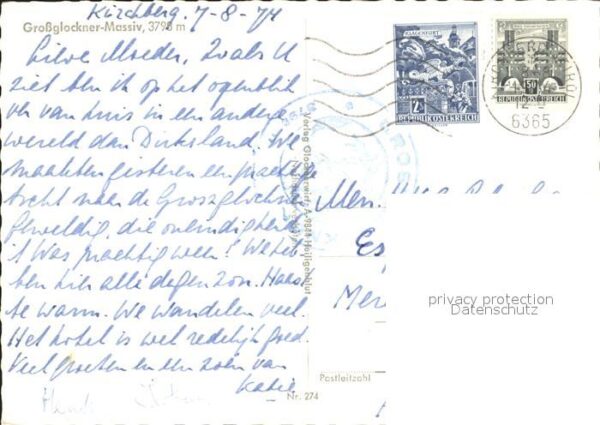 Kirchberg. 7-8-74
Großglockner-Massiv, 3798 m
Lieve Moeder, Zoals U
ziet ben ik op het ogenblik
van huis in een andere
wereld dan Dirksland. We
maakten gisteren een prachtige
tocht naar de Grosglockner
Geweldig, die oneindigheid
Was prachtig weer! We
hier alle dagen zon.
te warm. We wandelen veel.
Het hotel is wel redelijk goed.
Veel groeten en een zoen van
Katie
Verlag Glocknerwirt, A-9844 Heiligenblut
Nr. 274
KLAGENFURT
2
REPUBLIK ÖSTERREICH
1.50
REPUBLIK ÖSTERREICH
6365
Es
Mer
Postleitzahl
privacy protection
Datenschutz